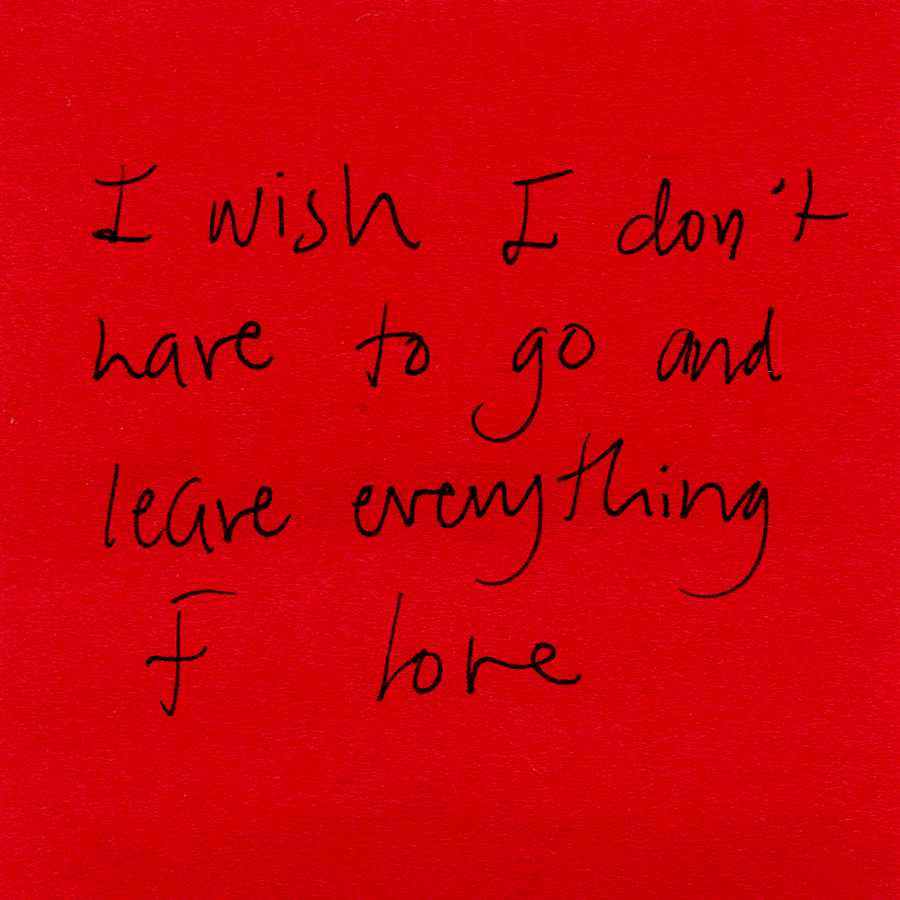 I wish I don't
have to go and
leave everything
I love